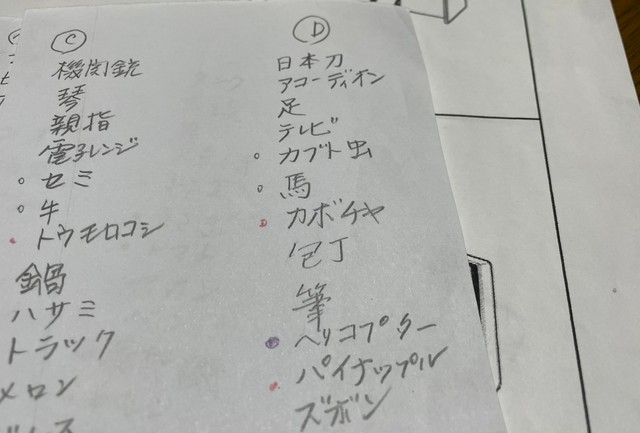 C
機関銃
琴
親指
電子レンジ
セミ
牛
トウモロコシ
鍋
ハサミ
トラック
メロン
D
日本刀
アコーディオン
足
テレビ
カブト虫
馬
カボチャ
包丁
筆
ヘリコプター
パイナップル
ズボン